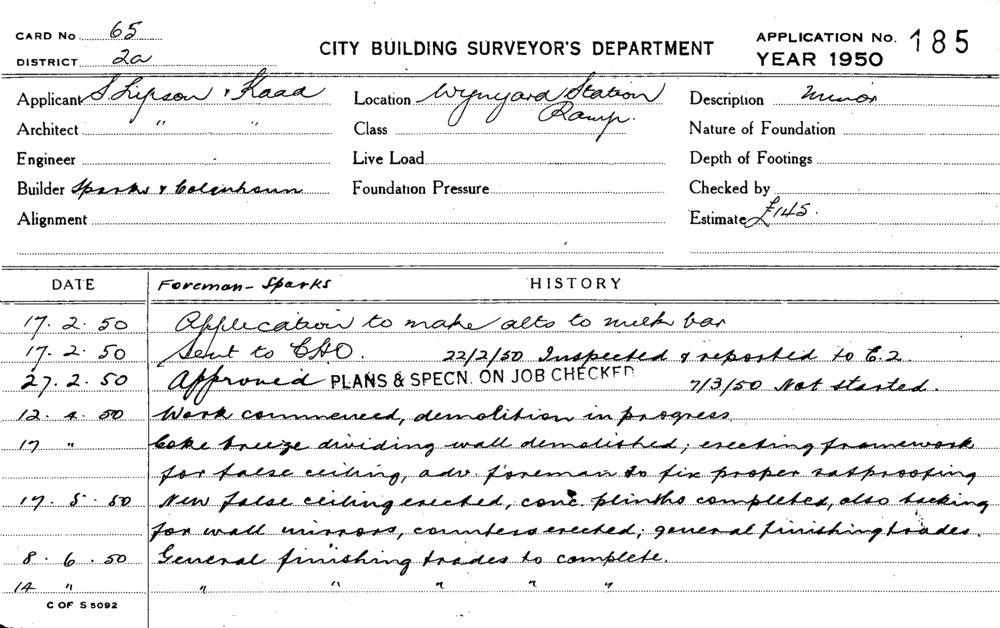 CARD No 65
DISTRICT 2a
CITY BUILDING SURVEYOR'S DEPARTMENT
APPLICATION No. 185
YEAR 1950
Applicant S. Lipson & Kaad
Location Wynyard Station Ramp.
Description Minor
Architect " "
Class
Nature of Foundation
Engineer
Live Load
Depth of Footings
Builder Sparks & Colquhoun
Foundation Pressure
Checked by
Alignment
Estimate £145.
DATE Foreman - Sparks HISTORY
17. 2. 50 Application to make alts to milk bar
17. 2. 50 Sent to CHO. 22/2/50 Inspected & reported to E.2.
27. 2. 50 Approved PLANS & SPECN. ON JOB CHECKED 7/3/50 Not started.
12. 4. 50 Work commenced, demolition in progress
17 " Coke breeze dividing wall demolished; erecting framework
for false ceiling, adv. foreman to fix proper ratproofing
17. 5. 50 New false ceiling erected, conc. plinths completed, also backing
for wall mirrors, counters erected; general finishing trades.
8. 6. 50 General finishing trades to complete.
14 " " " " " "
C OF S 5092